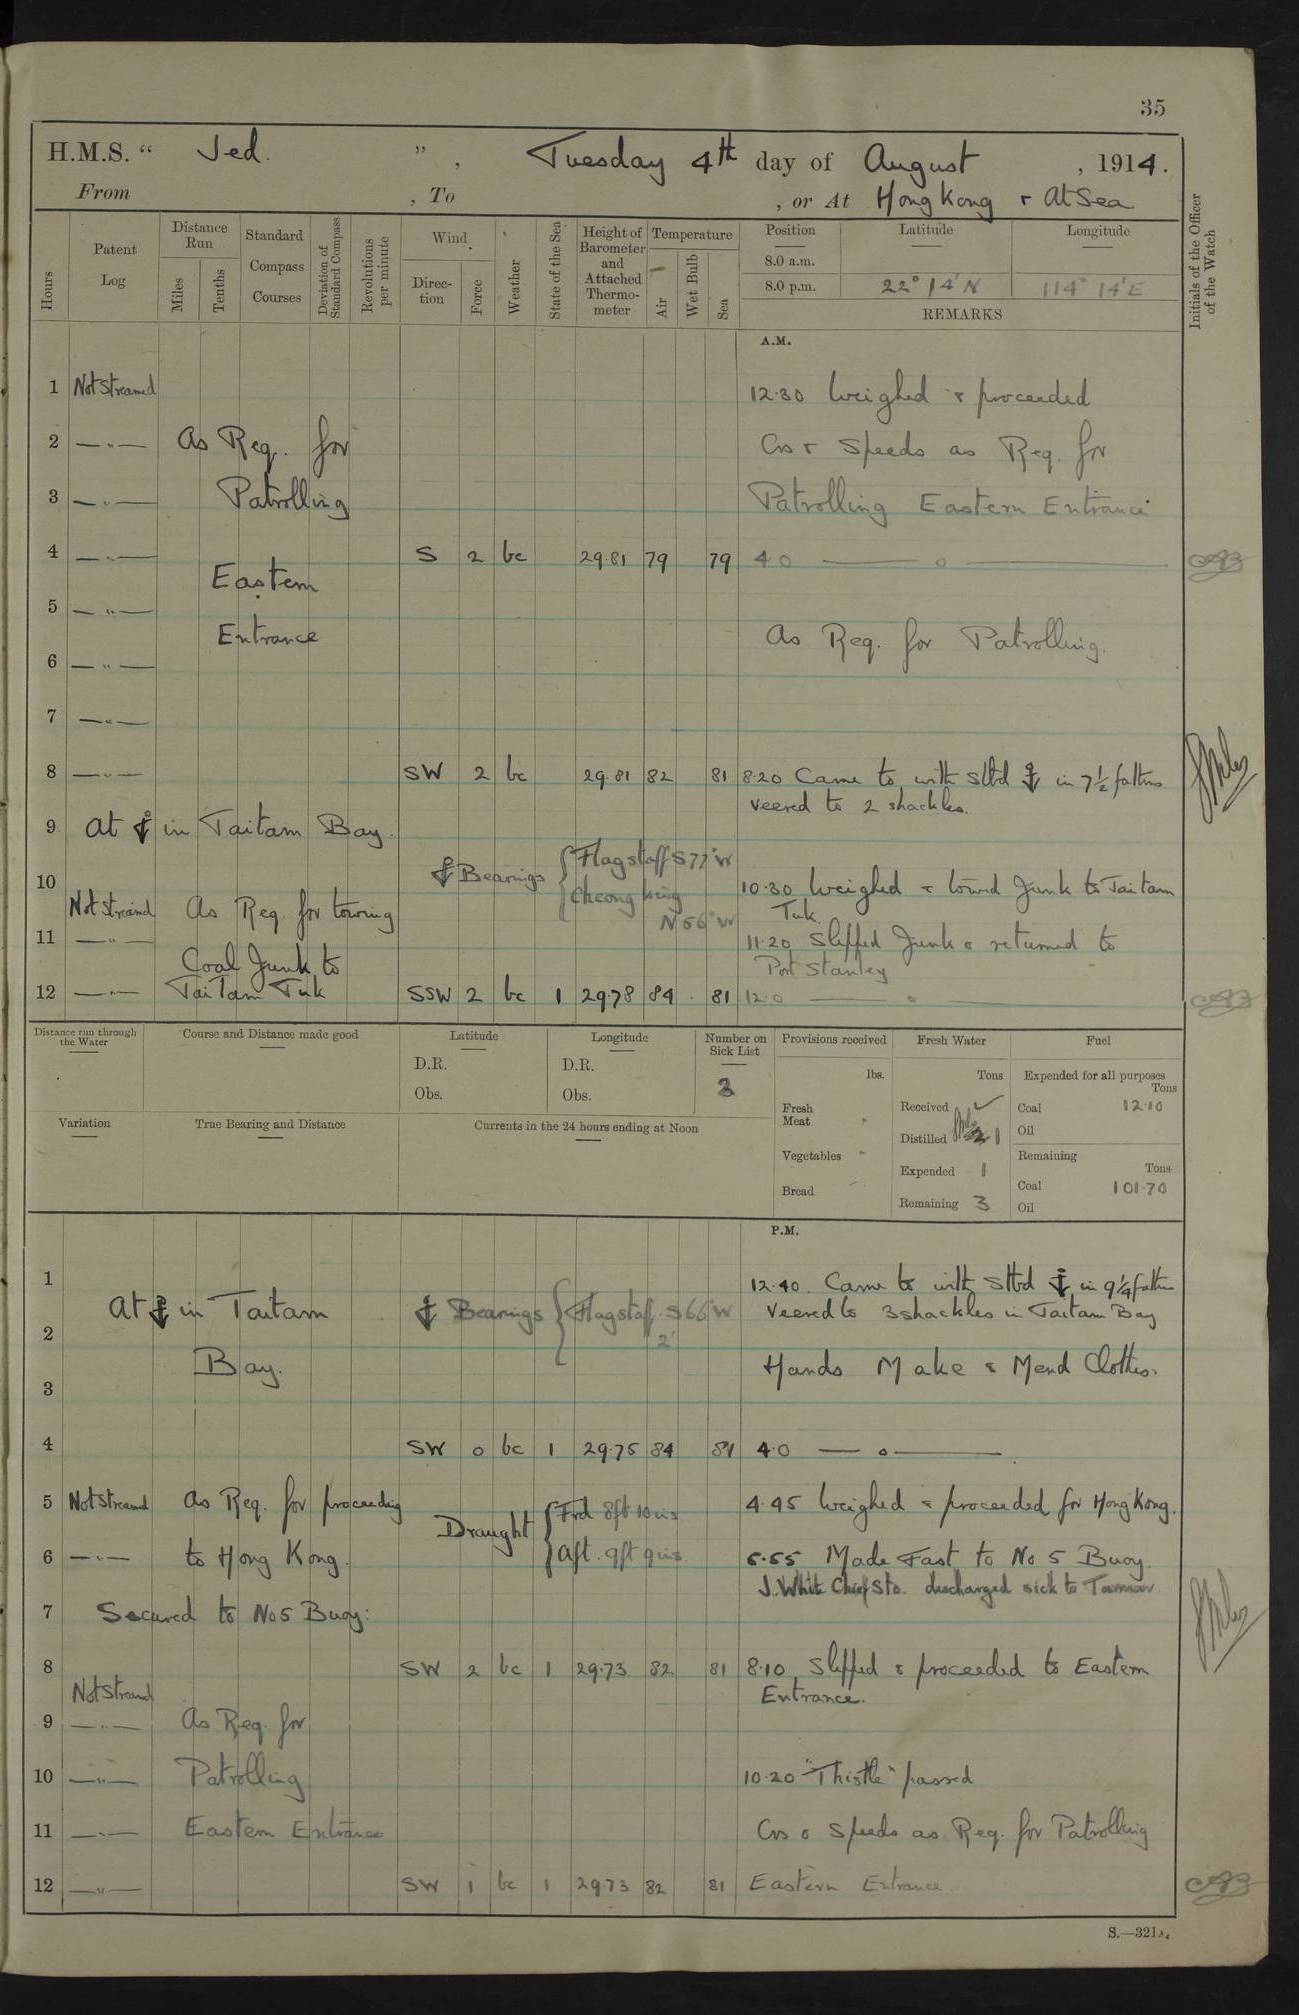 35
H.M.S. " Jed. ", Tuesday 4th day of August, 1914.
From , To , or At Hong Kong & At Sea
Hours
Patent Log
Distance Run
Miles
Tenths
Standard Compass Courses
Deviation of Standard Compass
Revolutions per minute
Wind
Direction
Force
Weather
State of the Sea
Height of Barometer and Attached Thermometer
Temperature
Air
Wet Bulb
Sea
Position Latitude Longitude
8.0 a.m.
8.0 p.m. 22° 14' N 114° 14' E
REMARKS
Initials of the Officer of the Watch
A.M.
1 Not Streamed 12.30 Weighed & proceeded
2 —"— As Req. for Cos & Speeds as Req. for
3 —"— Patrolling Patrolling Eastern Entrance
4 —"— S 2 bc 29.81 79 79 4.0 —— o ——
Eastern
5 —"—
Entrance As Req. for Patrolling.
6 —"—
7 —"—
8 —"— SW 2 bc 29.81 82 81 8.20 Came to with Stbd ⚓ in 7½ fathms
veered to 2 shackles.
9 At ⚓ in Taitam Bay.
⚓ Bearings { Flagstaff S 77° W
10 Cheong King 10.30 Weighed & towed Junk to Taitam
Not Streamed As Req. for towing N 56° W Tuk.
11 —"— 11.20 Slipped Junk & returned to
Coal Junk to Port Stanley
12 —"— Tai Tam Tuk SSW 2 bc 1 29.78 84 81 12.0 —— o ——
Distance run through the Water
Course and Distance made good
Latitude
D.R.
Obs.
Longitude
D.R.
Obs.
Number on Sick List
3
Variation
True Bearing and Distance
Currents in the 24 hours ending at Noon
Provisions received
lbs.
Fresh Meat
Vegetables
Bread
Fresh Water
Tons
Received ✓
Distilled 1
Expended 1
Remaining 3
Fuel
Expended for all purposes
Tons
Coal 12.10
Oil
Remaining
Tons
Coal 101.70
Oil
P.M.
1 12.40. Came to with Stbd ⚓ in 9¼ fathms
At ⚓ in Taitam ⚓ Bearings { Flagstaff S 66° W veered to 3 shackles in Taitam Bay
2 2'
Bay. Hands Make & Mend Clothes.
3
4 SW 0 bc 1 29.75 84 81 4.0 — o ——
5 Not Streamed As Req. for proceeding 4.45 Weighed & proceeded for Hong Kong.
Draught { Frd 8ft 10ins
6 —"— to Hong Kong. Aft. 9ft 9ins 5.55 Made Fast to No 5 Buoy.
J. White Chief Sto. discharged sick to Tamar.
7 Secured to No 5 Buoy:
8 SW 2 bc 1 29.73 82 81 8.10 Slipped & proceeded to Eastern
Not Streamed Entrance.
9 —"— As Req. for
10 —"— Patrolling 10.20 "Thistle" passed
11 —"— Eastern Entrance Cos & Speeds as Req. for Patrolling
12 —"— SW 1 bc 1 29.73 82 81 Eastern Entrance
S.—321A.